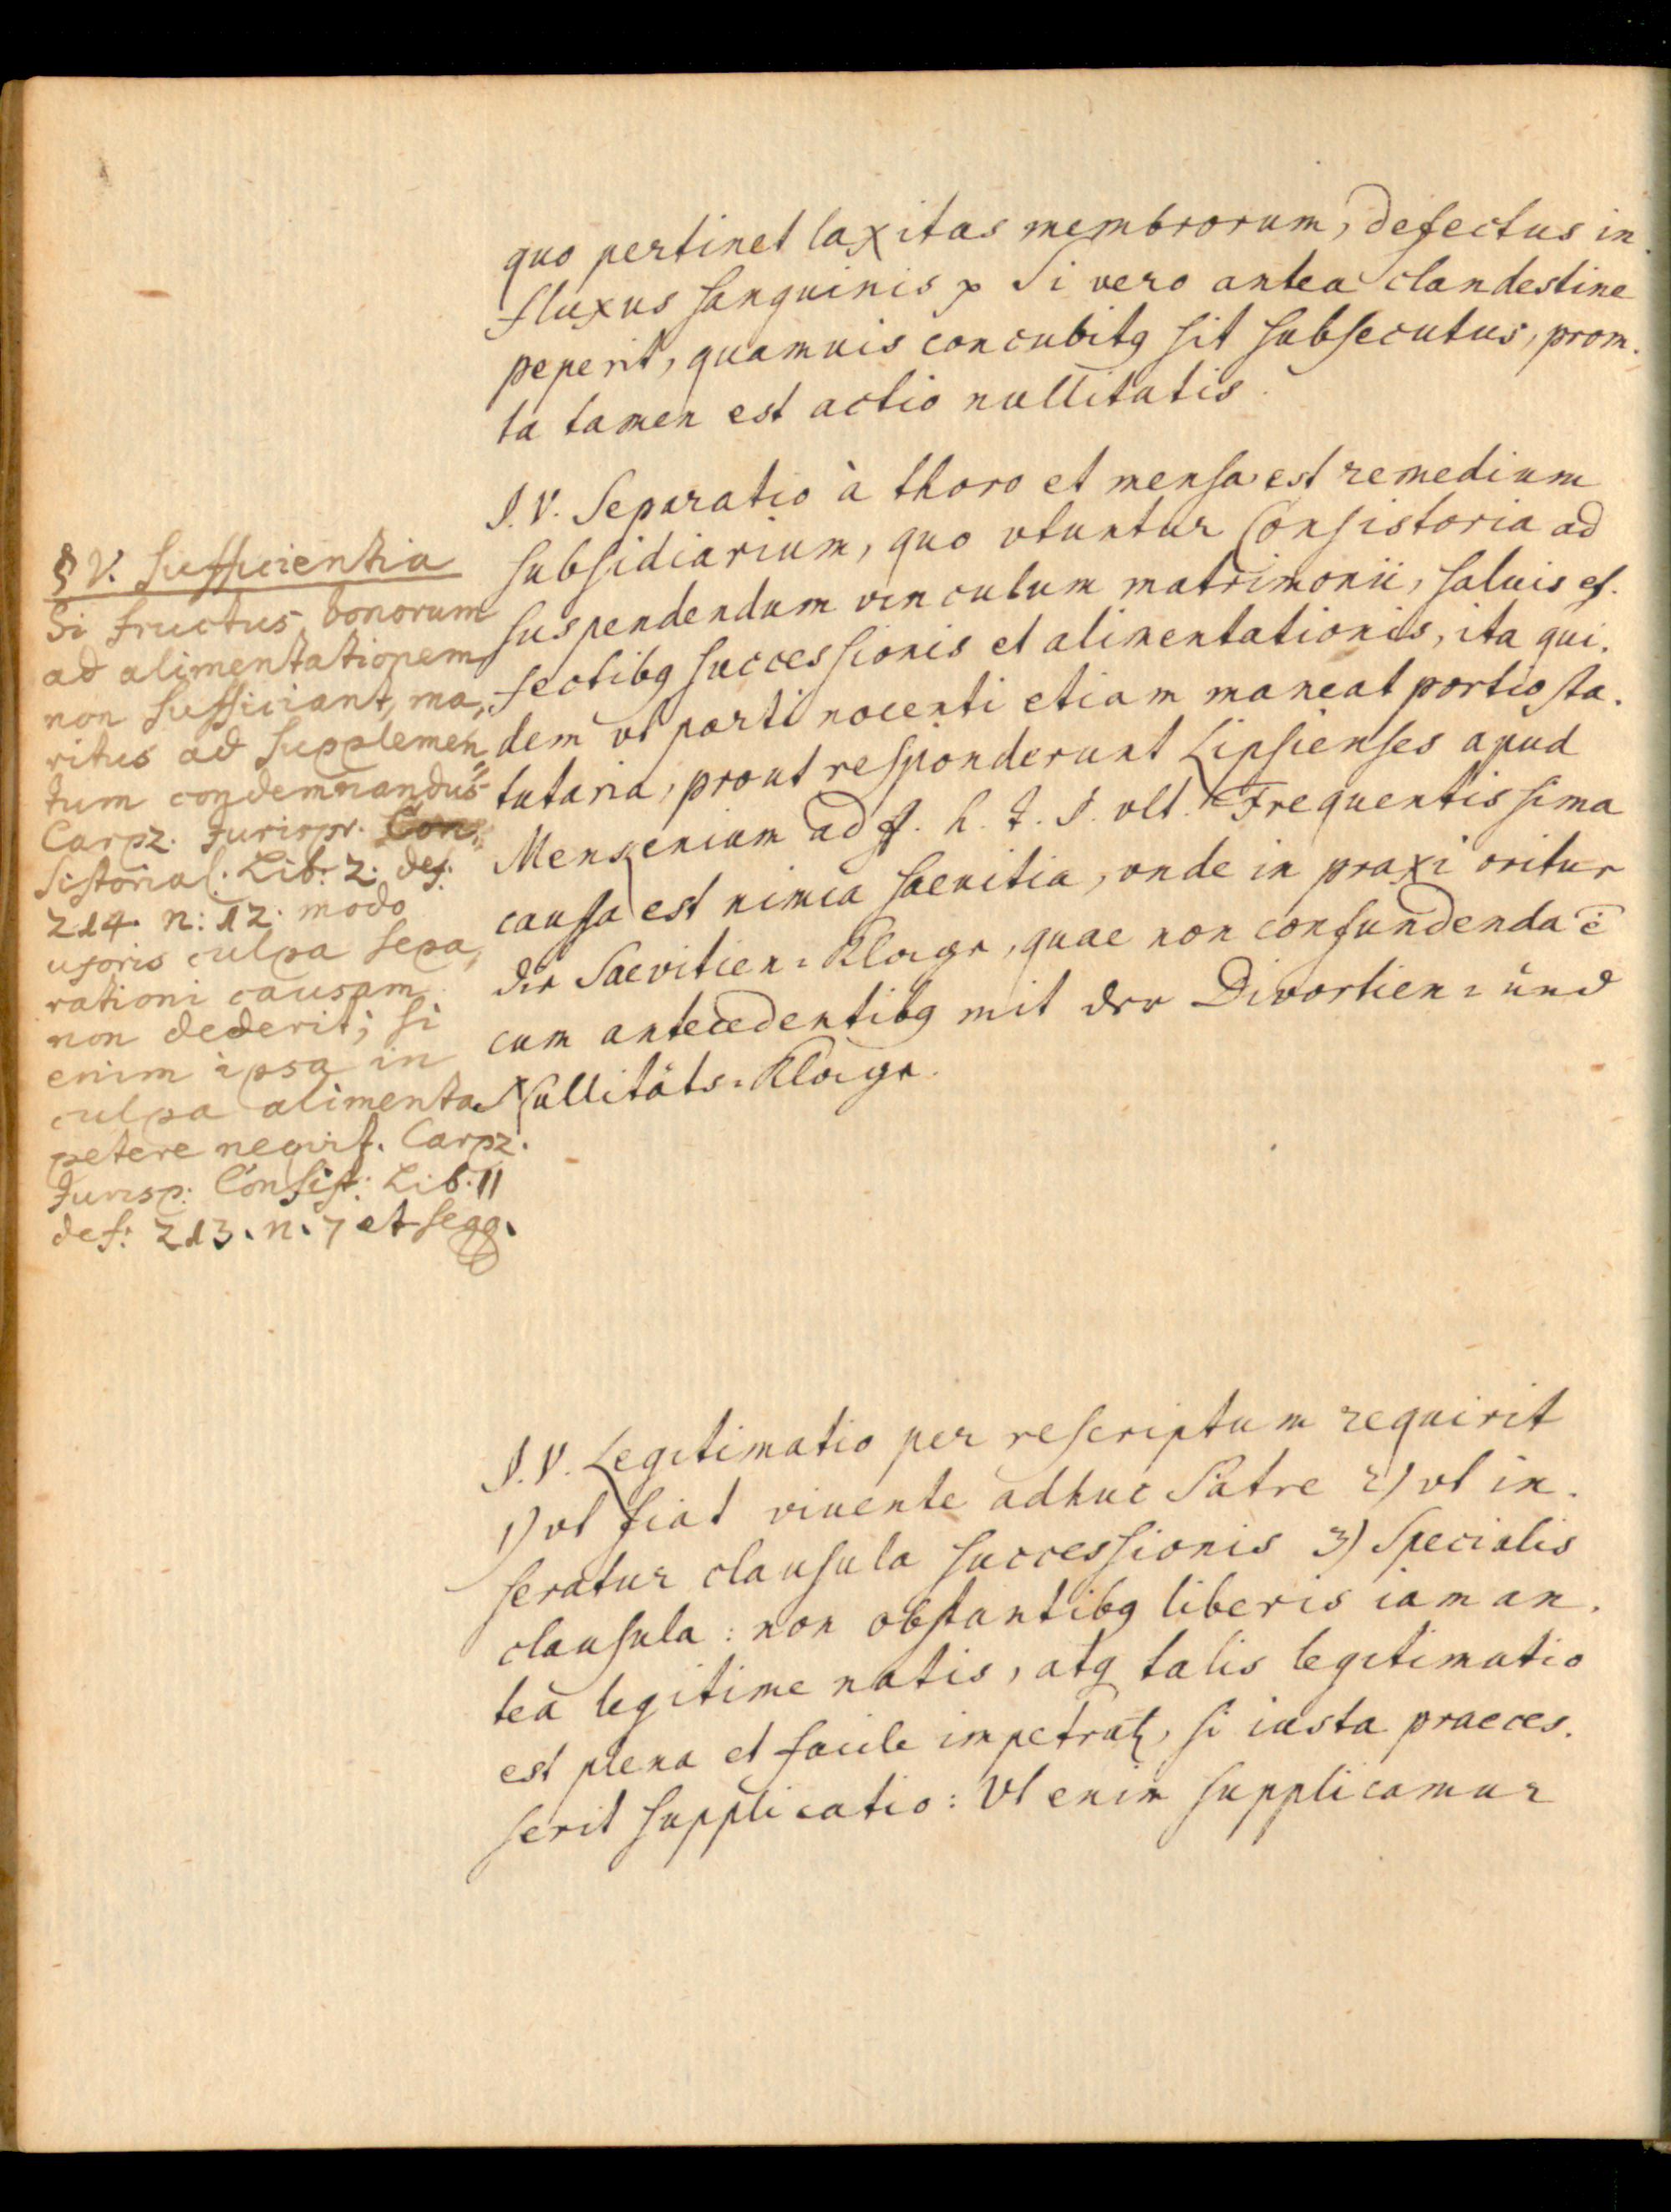 quo pertinet laxitas membrorum, defectus in-
fluxus sanguinis p Si vero antea clandestine
peperit, quamuis concubitq sit subsecutus, prom-
ta tamen est actio nullitatis.
§. V. Separatio à thoro et mensa est remedium
subsidiarium, quo vtuntur Consistoria ad
suspendendum vinculum matrimonii, saluis ef-
fectibq successionis et alimentationis, ita qui-
dem vt parti nocenti etiam maneat portio sta-
tutaria, prout responderunt Lipsienses apud
Menkenium ad ff. h. t. §. vlt. Frequentissima
causa est nimia saevitia, vnde in praxi oritur
die Saevitien-Klage, quae non confundenda ē
cum antecedentibq mit der Divortien- und
Nullitäts-Klage.
§ V. Sufficientia
Si fructus bonorum
ad alimentationem
non sufficiant, ma-
ritus ad supplemen-
tum condemnandus
Carpz. Jurispr. Con-
sistorial. Lib: 2. def.
214. n: 12. modo
uxoris culpa sepa-
rationi causam
non dederit; si
enim ipsa in
culpa alimenta
petere nequit. Carpz.
Jurisp: Consist: Lib. II
def: 213. n. 7 et seqq.
§. V. Legitimatio per rescriptum requirit
1) vt fiat viuente adhuc Patre 2) vt in-
seratur clausula successionis 3) Specialis
clausula: non obstantibq liberis iam an-
tea legitime natis, atq talis legitimatio
est plena et facile impetratr, si iusta praeces-
serit supplicatio: Vt enim supplicamur